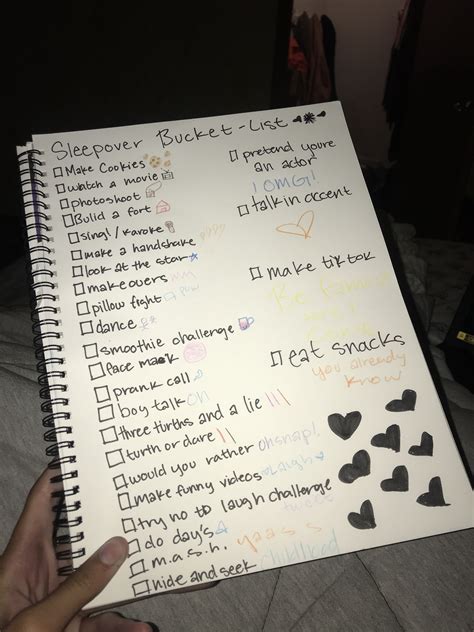 Sleepover Bucket-List
Make Cookies
watch a movie
photoshoot
Build a fort
sing!/karoke
make a handshake
look at the star
makeovers
pillow fight
dance
smoothie challenge
face mask
prank call
boy talk oh
three turths and a lie
turth or dare
would you rather ohsnap!
make funny videos laugh
try no to laugh challenge
do day's
m.a.s.h. yaass
hide and seek childhood
pretend you're
an actor
! OMG!
talk in accent
make tiktok
Be famous
eat snacks
you already
know